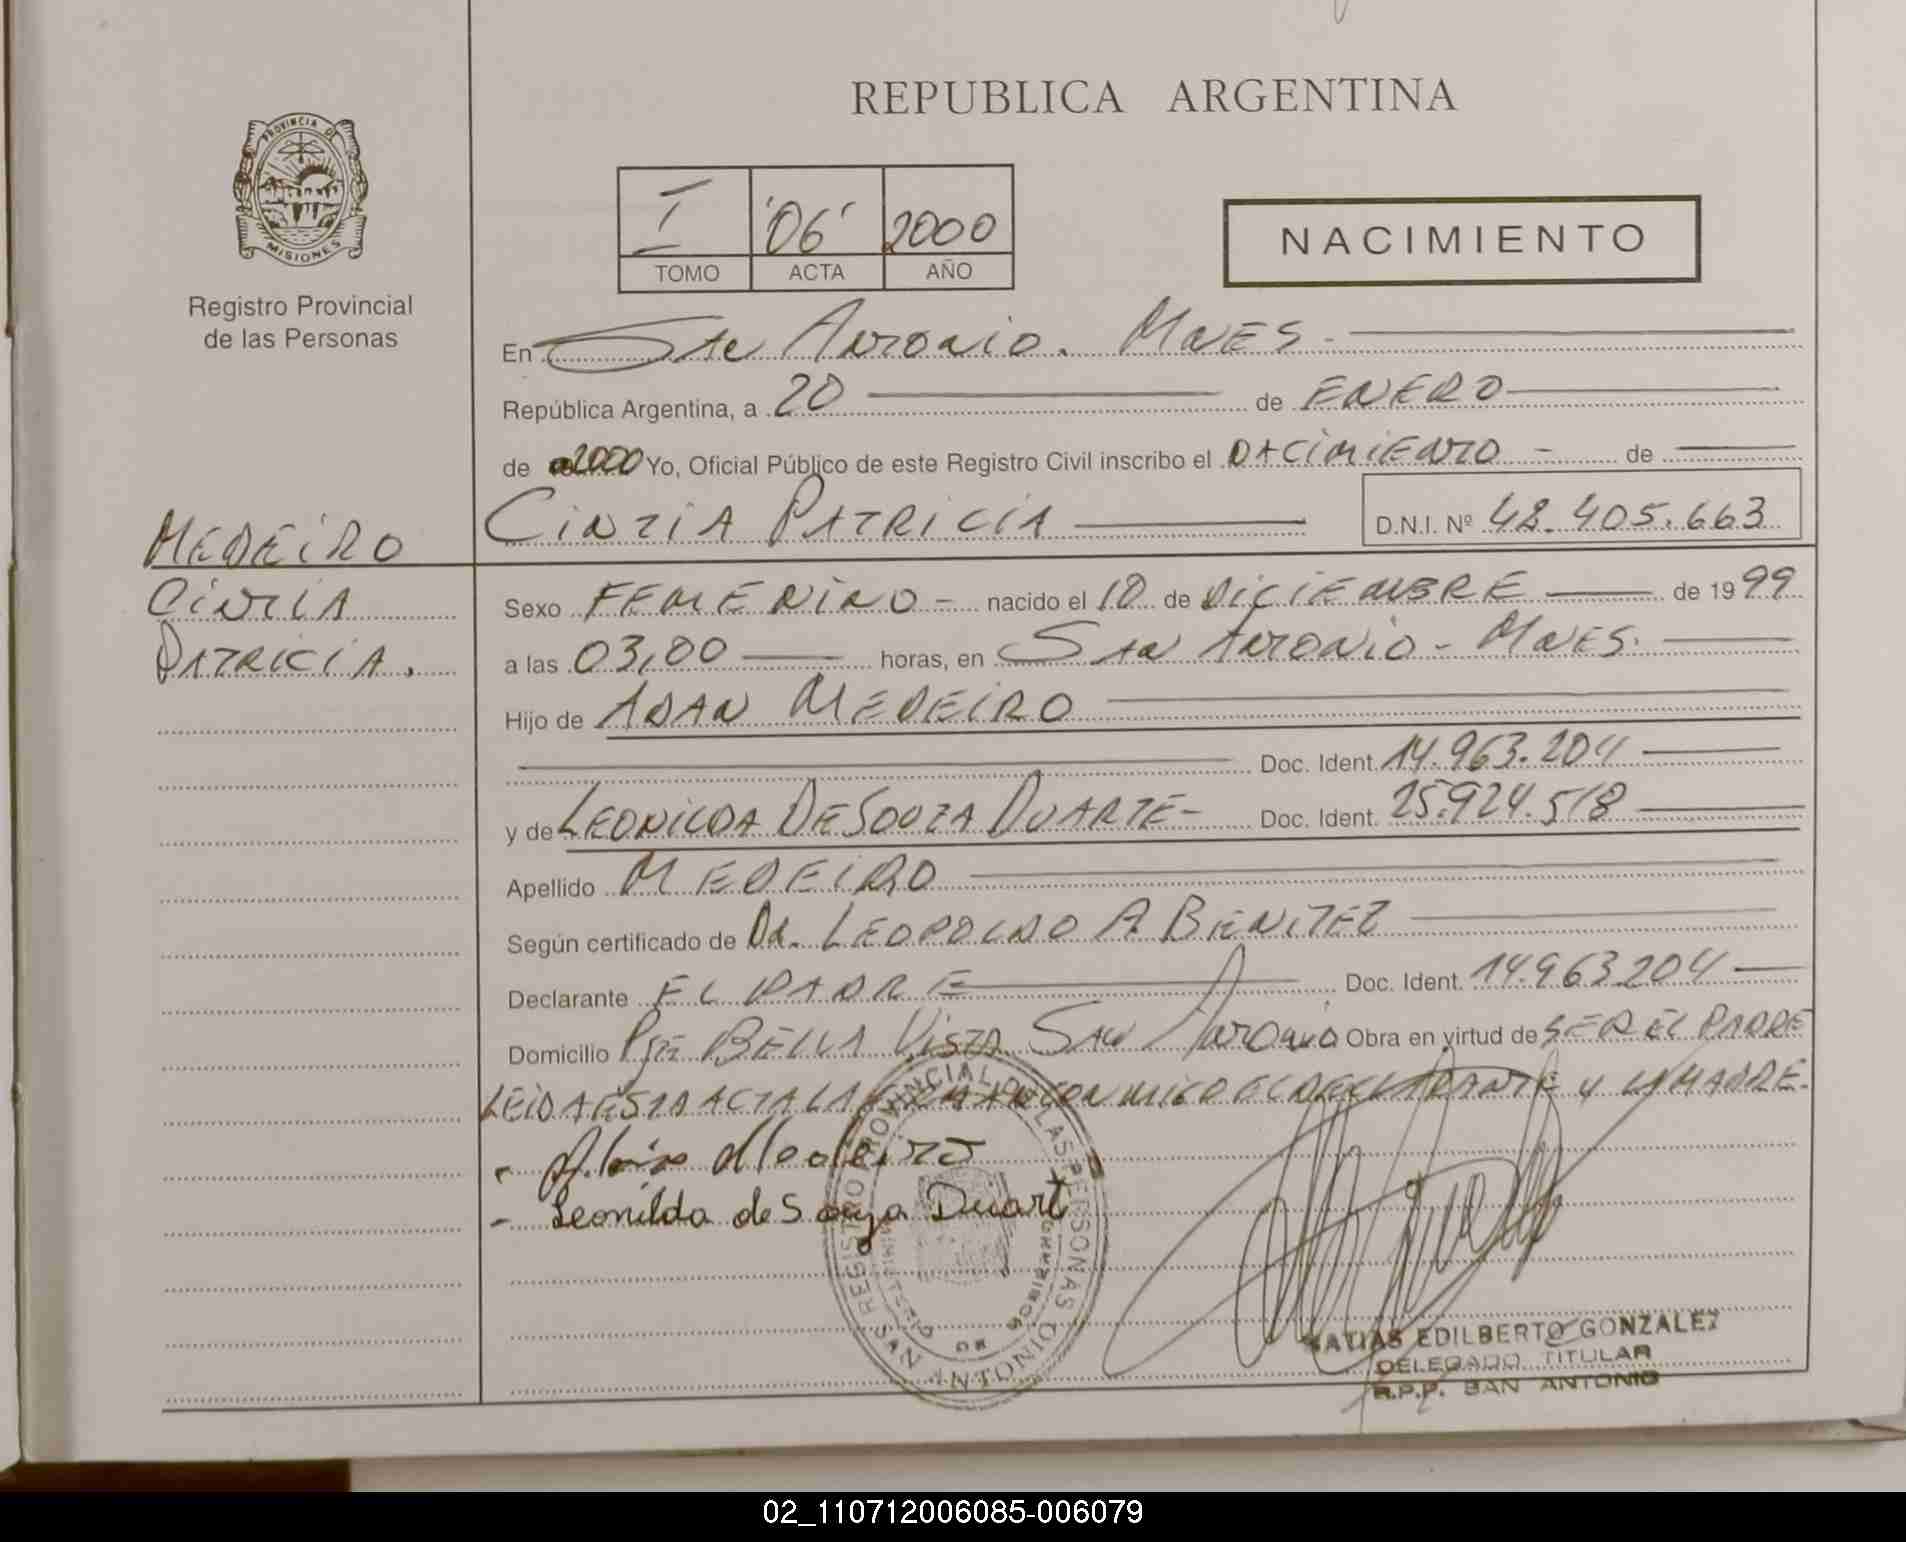 REPUBLICA ARGENTINA
PROVINCIA DE MISIONES
Registro Provincial
de las Personas
I '06' 2000
TOMO ACTA AÑO
NACIMIENTO
En San Antonio. Mnes.
República Argentina, a 20 de ENERO
de 2000 Yo, Oficial Público de este Registro Civil inscribo el NACIMIENTO - de
CINTIA PATRICIA D.N.I. Nº 42.405.663
MEDEIRO
CINTIA
PATRICIA.
Sexo FEMENINO - nacido el 10 de DICIEMBRE de 1999
a las 03,00 horas, en SAN ANTONIO - MNES.
Hijo de ADAN MEDEIRO
Doc. Ident. 14.963.204
y de LEONILDA DE SOUZA DUARTE - Doc. Ident. 25.924.518
Apellido MEDEIRO
Según certificado de Dr. LEOPOLDO A. BENITEZ
Declarante EL PADRE Doc. Ident. 14.963.204
Domicilio Pje BELLA VISTA SAN ANTONIO Obra en virtud de SER EL PADRE
LEIDA ESTA ACTA LA FIRMAN CONMIGO EL DECLARANTE Y LA MADRE.
- Medeiro
- Leonilda de Souza Duart
REGISTRO PROVINCIAL DE LAS PERSONAS
SAN ANTONIO
MATIAS EDILBERTO GONZALEZ
DELEGADO TITULAR
R.P.P. SAN ANTONIO
02_110712006085-006079